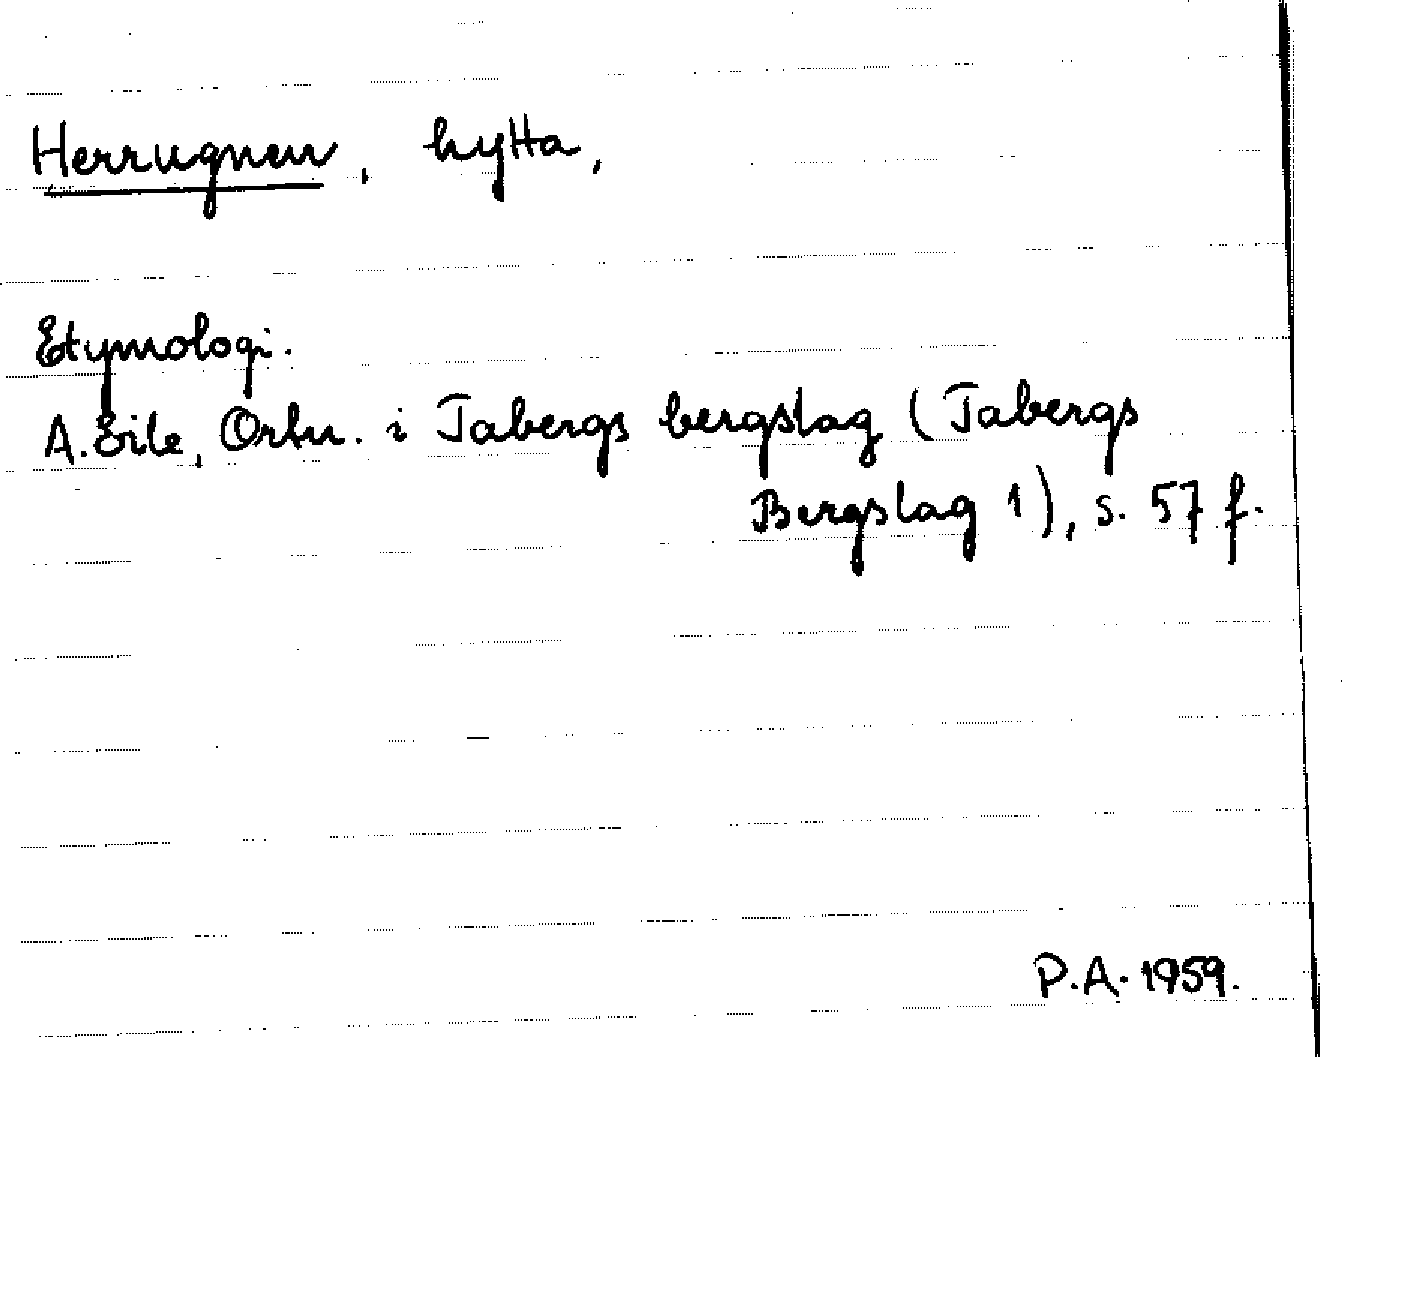 Herrugnen, hytta,
Etymologi.
A. Eile, Ortn. i Tabergs bergslag (Tabergs
Bergslag 1), s. 57 f.
P.A. 1959.